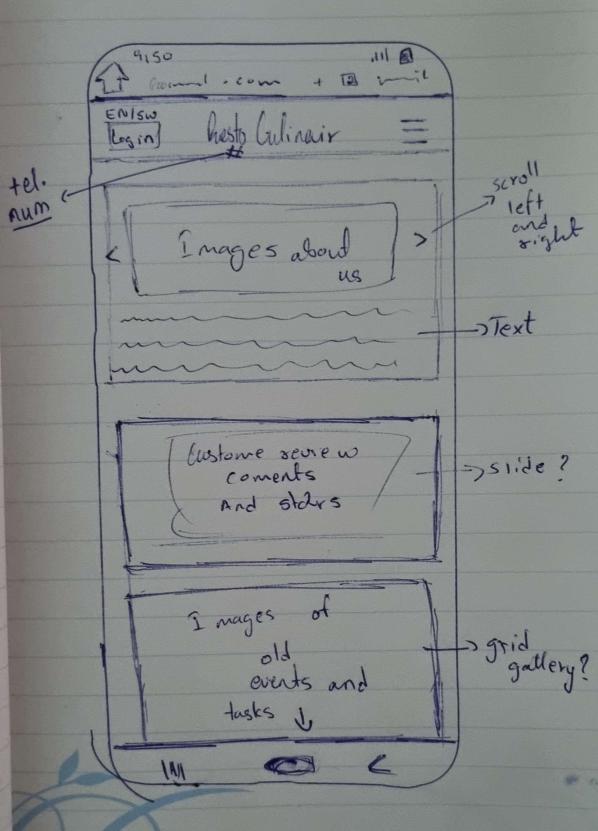 9:50
.com +
EN/SW
Login
Resto Culinair
#
tel.
num
scroll
left
and
right
< >
Images about
us
Text
Custome review
coments
And stars
slide?
Images of
old
events and
tasks ↓
grid
gallery?